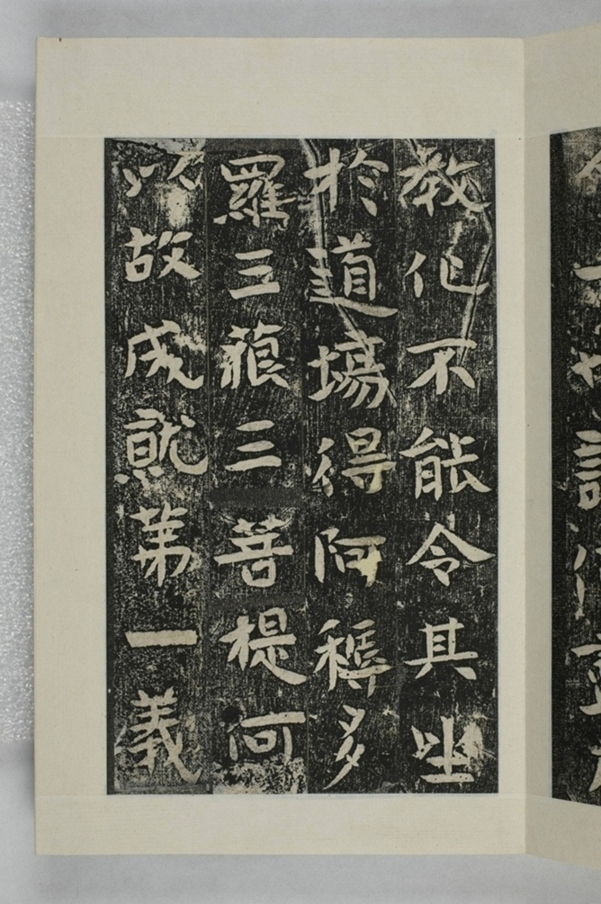 教化不能令其坐
於道場得阿耨多
羅三藐三菩提何
以故成就第一義